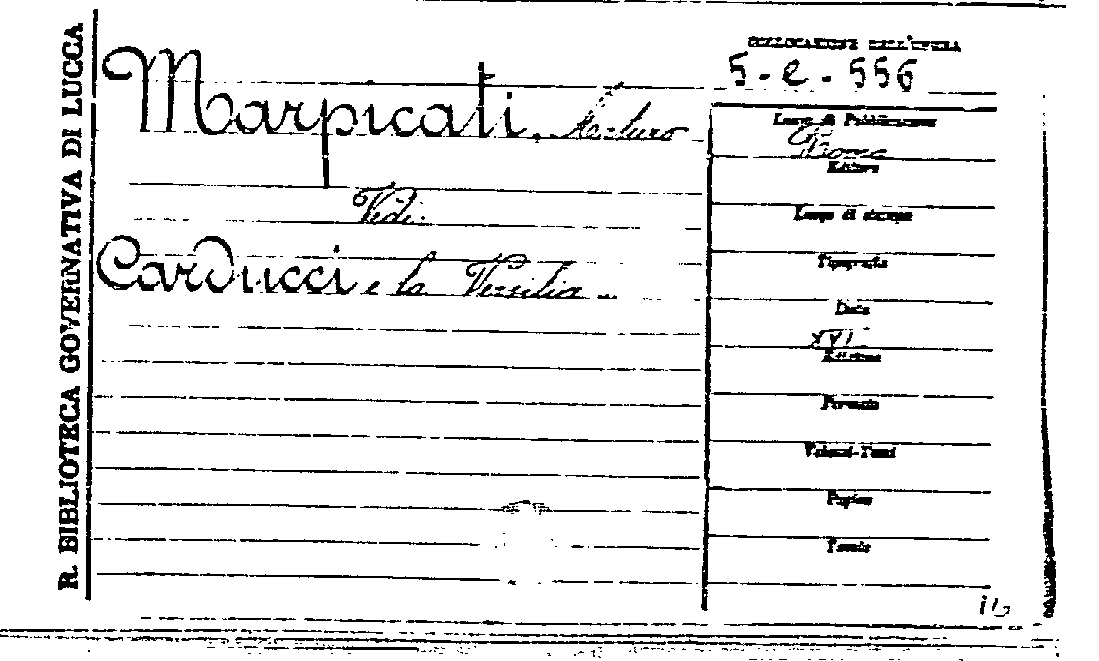 R. BIBLIOTECA GOVERNATIVA DI LUCCA
COLLOCAZIONE DELL'OPERA
5-e-556
Marpicati, Arturo
Vedi:
Carducci e la Versilia
Luogo di Pubblicazione
Roma
Editore
Luogo di stampa
Tipografia
Data
XVI
Edizione
Formato
Volumi-Tomi
Pagine
Tavole